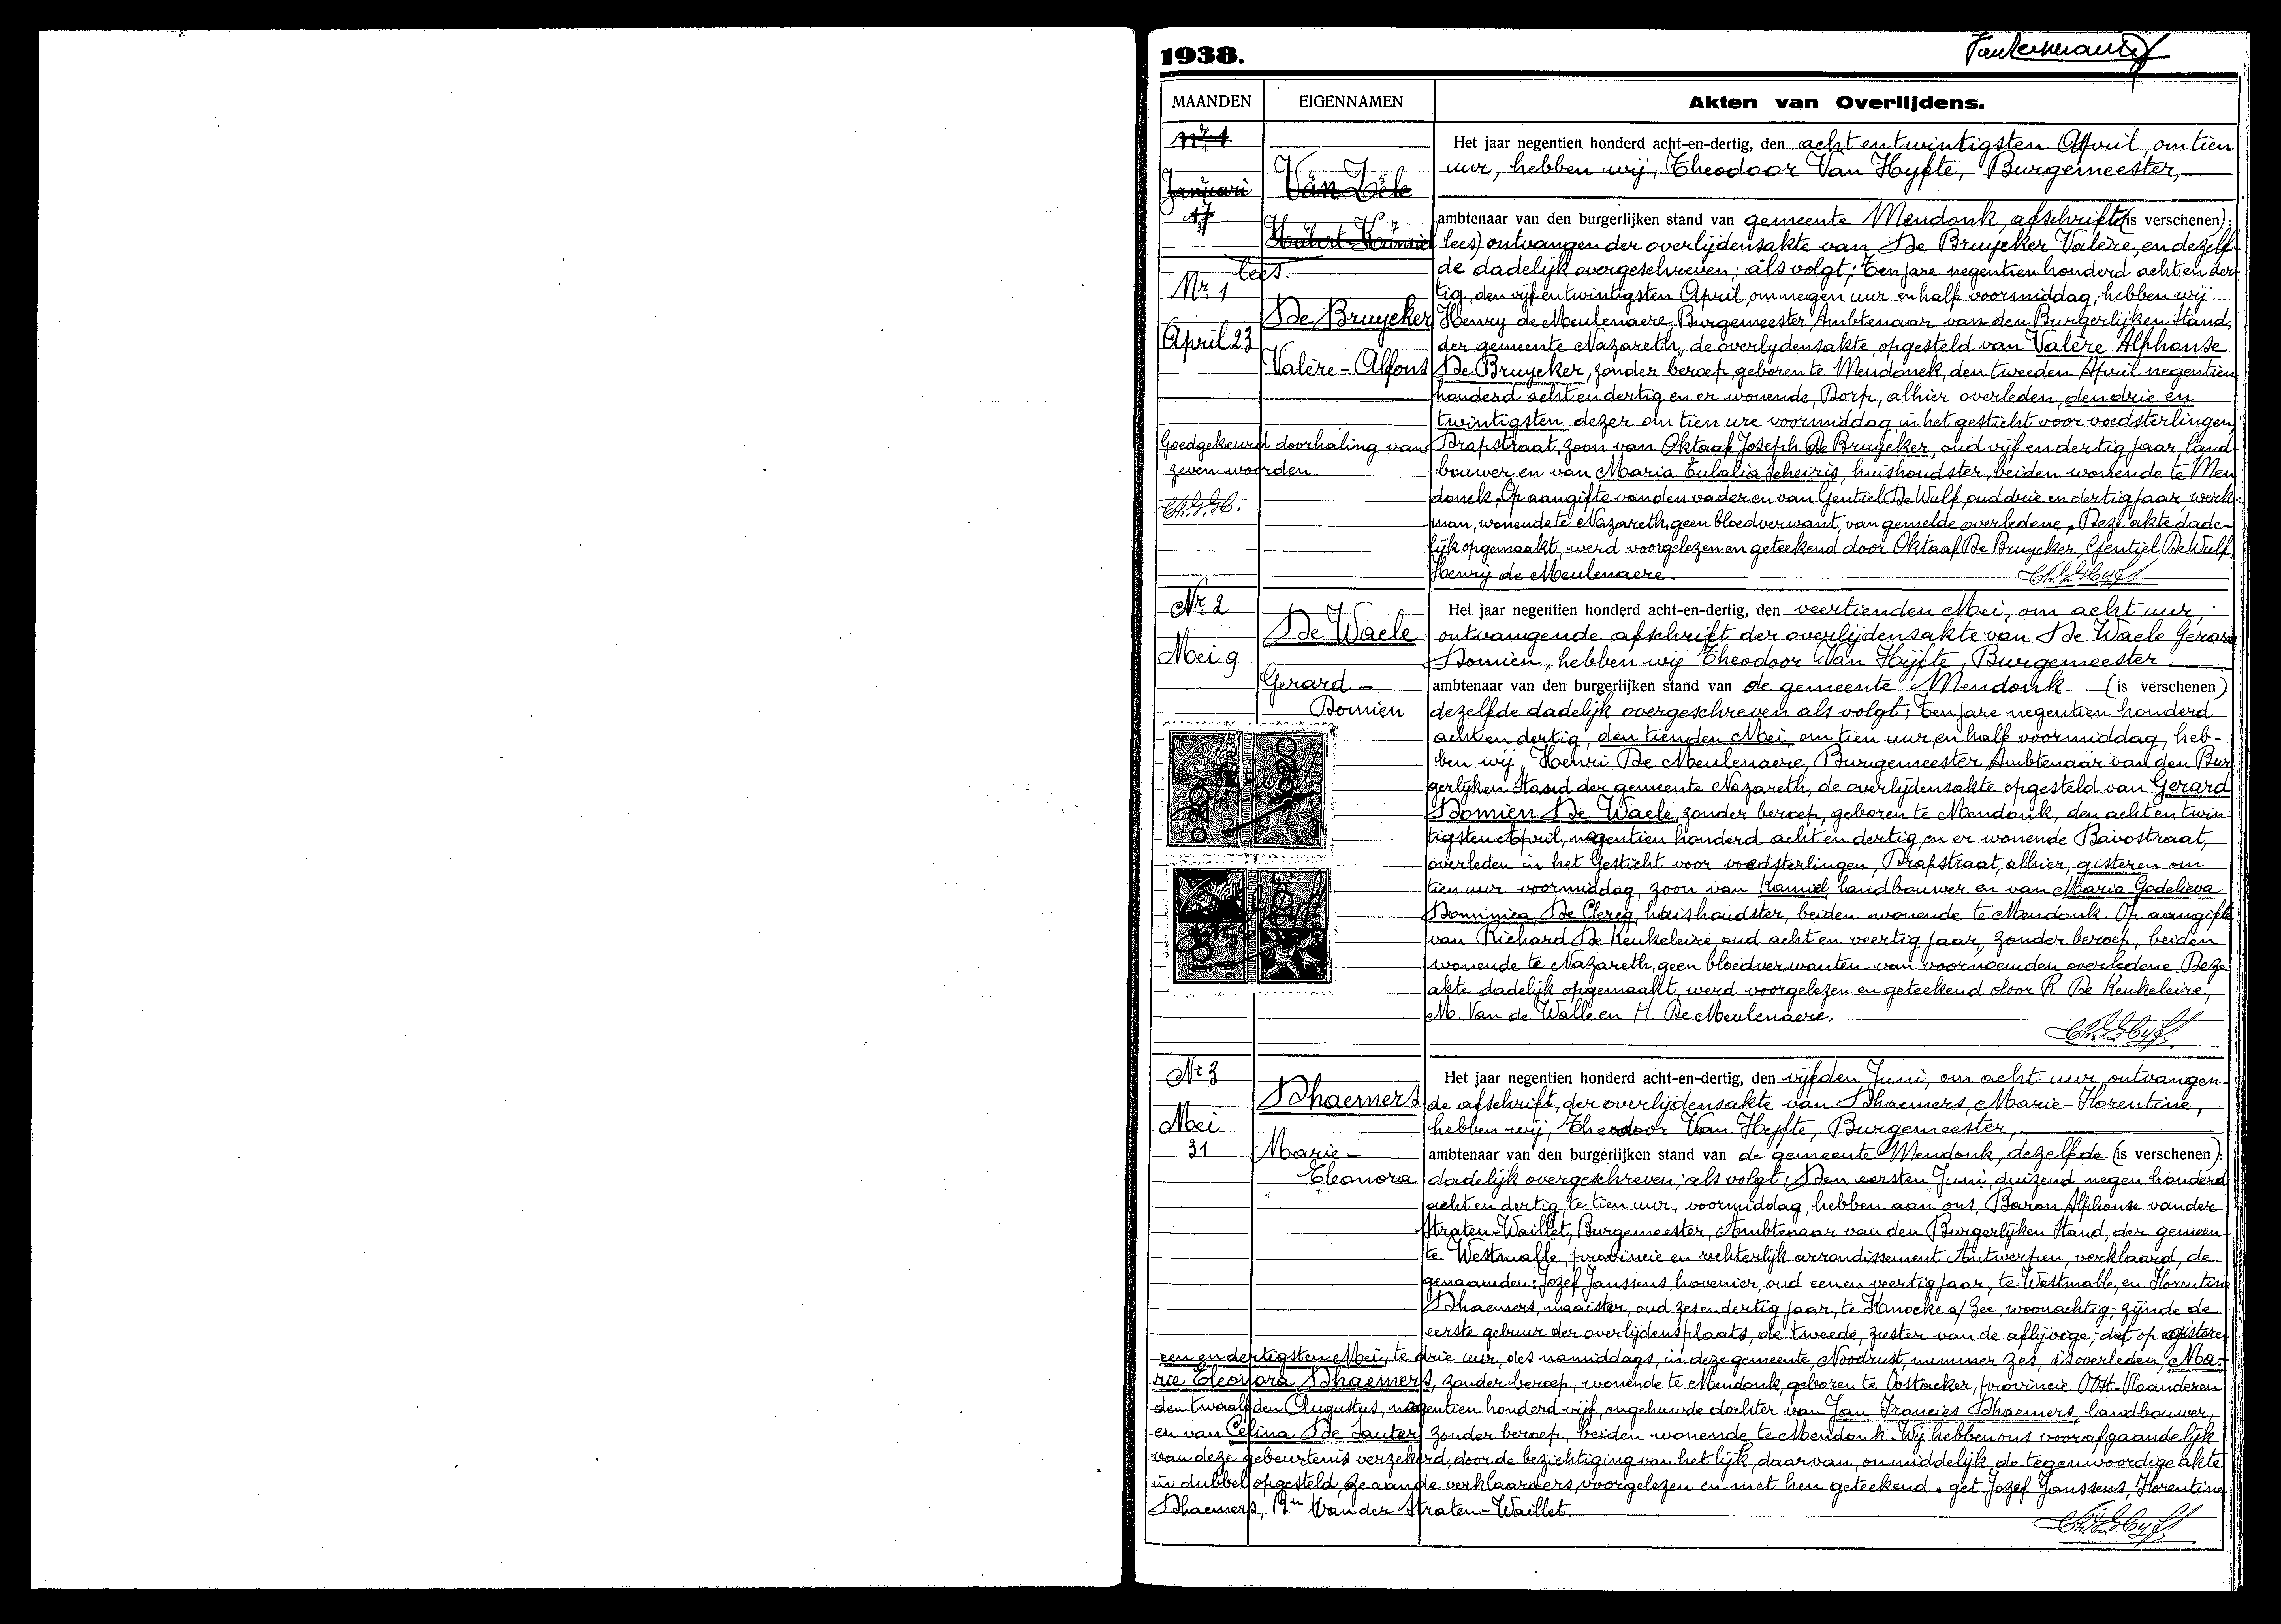 1938.
MAANDEN EIGENNAMEN Akten van Overlijdens.
Nr 1
Januari
17
Van Zele
Hubert Kamiel
lees.
Nr. 1
April 23
De Bruycker
Valère - Alfons
Goedgekeurd doorhaling van
zeven woorden.
Het jaar negentien honderd acht-en-dertig, den acht en twintigsten April, om tien
uur, hebben wij, Theodoor Van Hyfte, Burgemeester,
ambtenaar van den burgerlijken stand van gemeente Mendonk, afschrift (is verschenen):
lees) ontvangen der overlijdensakte van De Bruycker Valère, en dezelf-
de dadelijk overgeschreven; als volgt; Ten jare negentien honderd acht en der-
tig, den vijf en twintigsten April, om negen uur en half voormiddag, hebben wij
Henry de Meulenaere, Burgemeester Ambtenaar van den Burgerlijken Stand,
der gemeente Nazareth, de overlydensakte opgesteld van Valère Alphonse
De Bruycker, zonder beroep, geboren te Mendonck, den tweeden April negentien
honderd acht en dertig en er wonende, Dorp, alhier overleden, den drie en
twintigsten dezer om tien ure voormiddag in het gesticht voor voedsterlingen,
Drapstraat, zoon van Oktaaf Joseph De Bruycker, oud vijf en dertig jaar, land-
bouwer en van Maria Eulalia Scheiris, huishoudster, beiden wonende te Men-
donck. Op aangifte van den vader en van Gentiel De Wulf, oud drie en dertig jaar, werk-
man, wonende te Nazareth, geen bloedverwant, van gemelde overledene. Deze akte dade-
lijk opgemaakt, werd voorgelezen en geteekend door Oktaaf De Bruycker, Gentiel De Wulf,
Henry de Meulenaere.
Nr. 2
Mei 9
De Waele
Gerard -
Domien
Het jaar negentien honderd acht-en-dertig, den veertienden Mei, om acht uur,
ontvangende afschrift der overlijdensakte van De Waele Gerard
Domien, hebben wij Theodoor Van Hyfte, Burgemeester.
ambtenaar van den burgerlijken stand van de gemeente Mendonk (is verschenen)
dezelfde dadelijk overgeschreven als volgt; Ten jare negentien honderd
acht en dertig, den tienden Mei, om tien uur en half voormiddag, heb-
ben wij, Henri De Meulenaere, Burgemeester Ambtenaar van den Bur-
gerlijken Stand der gemeente Nazareth, de overlijdensakte opgesteld van Gerard
Domien De Waele, zonder beroep, geboren te Mendonk, den acht en twin-
tigsten April, negentien honderd acht en dertig en er wonende Bavostraat,
overleden in het Gesticht voor voedsterlingen, Drapstraat, alhier, gisteren om
tien uur voormiddag, zoon van Kamiel, landbouwer en van Maria Godelieva
Dominica De Clercq, huishoudster, beiden wonende te Mendonk. Op aangifte
van Richard De Keukeleire, oud acht en veertig jaar, zonder beroep, beiden
wonende te Nazareth, geen bloedverwanten van voornoemden overledene. Deze
akte dadelijk opgemaakt, werd voorgelezen en geteekend door R. De Keukeleire,
M. Van de Walle en H. De Meulenaere.
Nr 3
Mei
31
Dhaemers
Marie -
Eleonora
Het jaar negentien honderd acht-en-dertig, den vijfden Juni, om acht uur, ontvangen-
de afschrift, der overlijdensakte van Dhaemers, Marie-Florentine,
hebben wij, Theodoor Van Hyfte, Burgemeester,
ambtenaar van den burgerlijken stand van de gemeente Mendonk, dezelfde (is verschenen):
dadelijk overgeschreven; als volgt; Den eersten Juni, duizend negen honderd
acht en dertig, te tien uur, voormiddag, hebben aan ons, Baron Alphonse vander
Straten-Waillet, Burgemeester, Ambtenaar van den Burgerlijken Stand, der gemeen-
te Westmalle, provincie en rechterlijk arrondissement Antwerpen, verklaard, de
genaamden: Jozef Janssens, hovenier, oud een en veertig jaar, te Westmalle, en Florentine
Dhaemers, oud zes en dertig jaar, te Knocke a/ Zee, woonachtig; zijnde de
eerste gebuur der overlijdensplaats, de tweede, zuster van de aflijvige; dat op gisteren
een en dertigsten Mei, te drie uur, des namiddags, in deze gemeente, Noodrust, nummer zes, is overleden, Ma-
rie Eleonora Dhaemers, zonder beroep, wonende te Mendonk, geboren te Oostacker, provincie Oost-Vlaanderen
den twaalfden Augustus, negentien honderd vijf, ongehuwde dochter van Jan Francies Dhaemers, landbouwer,
en van Celina De Sauter, zonder beroep, beiden wonende te Mendonk. Wij hebben ons voorafgaandelijk
van deze gebeurtenis verzekerd, door de bezichtiging van het lijk, daarvan, onmiddelijk de tegenwoordige akte
in dubbel opgesteld, ze aan de verklaarders, voorgelezen en met hen geteekend. get. Jozef Janssens, Florentine
Dhaemers, Bn Van der Straten-Waillet.